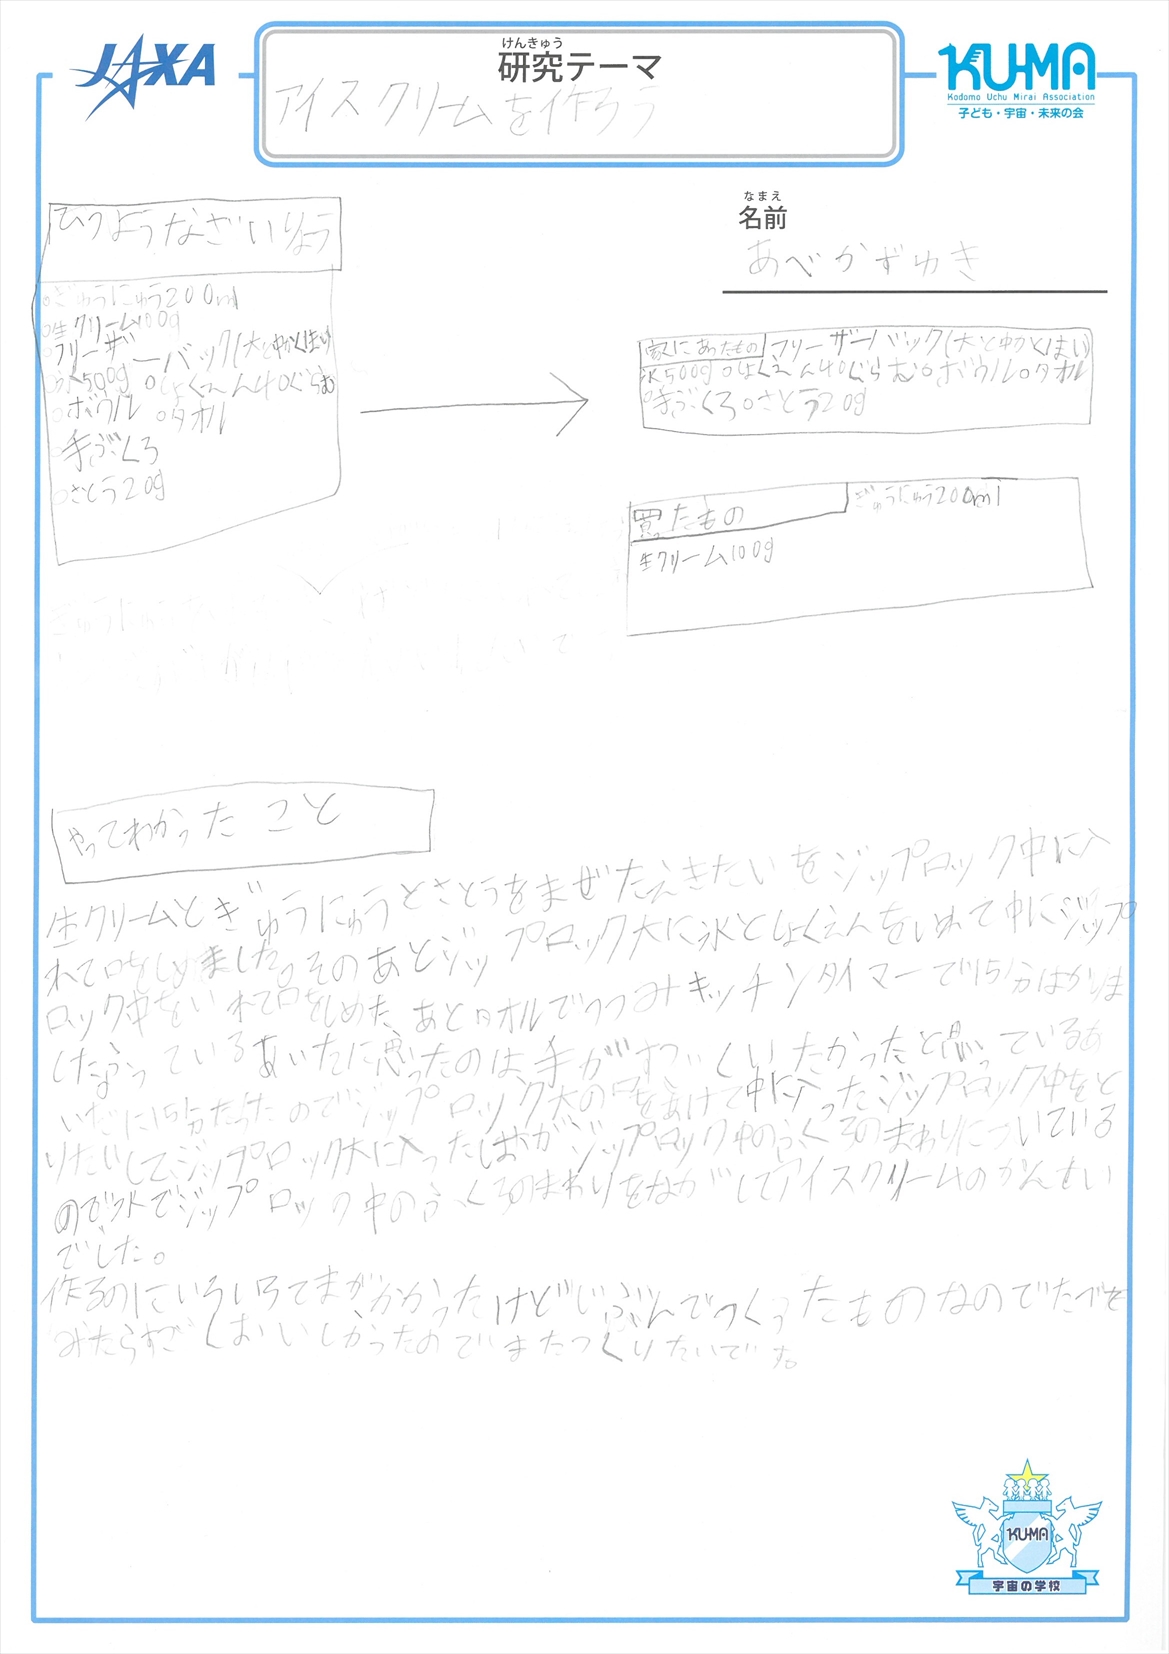 JAXA
けんきゅう
研究テーマ
アイスクリームを作ろう
KU-MA
Kodomo Uchu Mirai Association
子ども・宇宙・未来の会
なまえ
名前
あべかずゆき
ひつようなざいりょう
○ぎゅうにゅう200ml
○生クリーム100g
○フリーザーバック(大と中かくはい
○氷500g ○しょくえん40ぐらむ
○ボウル ○タオル
○手ぶくろ
○さとう20g
家にあったもの フリーザーバック(大と中かくはい)
氷500g ○しょくえん40ぐらむ○ボウル○タオル
○手ぶくろ○さとう20g
買ったもの ぎゅうにゅう200ml
生クリーム100g
やってわかったこと
生クリームとぎゅうにゅうとさとうをまぜたえきたいをジップロック中に入
れて口をしめました。そのあとジップロック大に氷としょくえんをいれて中にジップ
ロック中をいれて口をしめた あとタオルでつつみキッチンタイマーで15分はかりま
したふっているあいだに思ったのは、手がすごくいたかったと思っているあ
いだに15分たったのでジップロック大の口をあけて中に入ったジップロック中をと
りだしてジップロック大に入ったしおがジップロック中のふくろのまわりについている
ので水でジップロック中のふくろのまわりをながしてアイスクリームのかんせい
でした。
作るのにいろいろてまがかかったけどじぶんでつくったものなのでたべて
みたらすごくおいしかったのでまたつくりたいです。
KU-MA
宇宙の学校